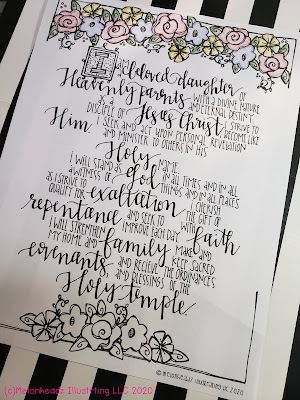 I am a
beloved daughter of
Heavenly parents with a divine nature
and eternal destiny.
as a
disciple of Jesus Christ, I strive to
become like
Him. I seek and act upon personal revelation
and minister to others in his
Holy name.
I will stand as a witness of god at all times and in all
things and in all places.
as I strive to
qualify for exaltation, I cherish
the gift of
repentance and seek to improve each day. with faith
I will strengthen
my home and family, make and
keep sacred
covenants, and recieve the ordinances
and blessings of the
Holy temple.
© melonheadz illustrating llc 2020
(c)Melonheadz Illustrating LLC 2020